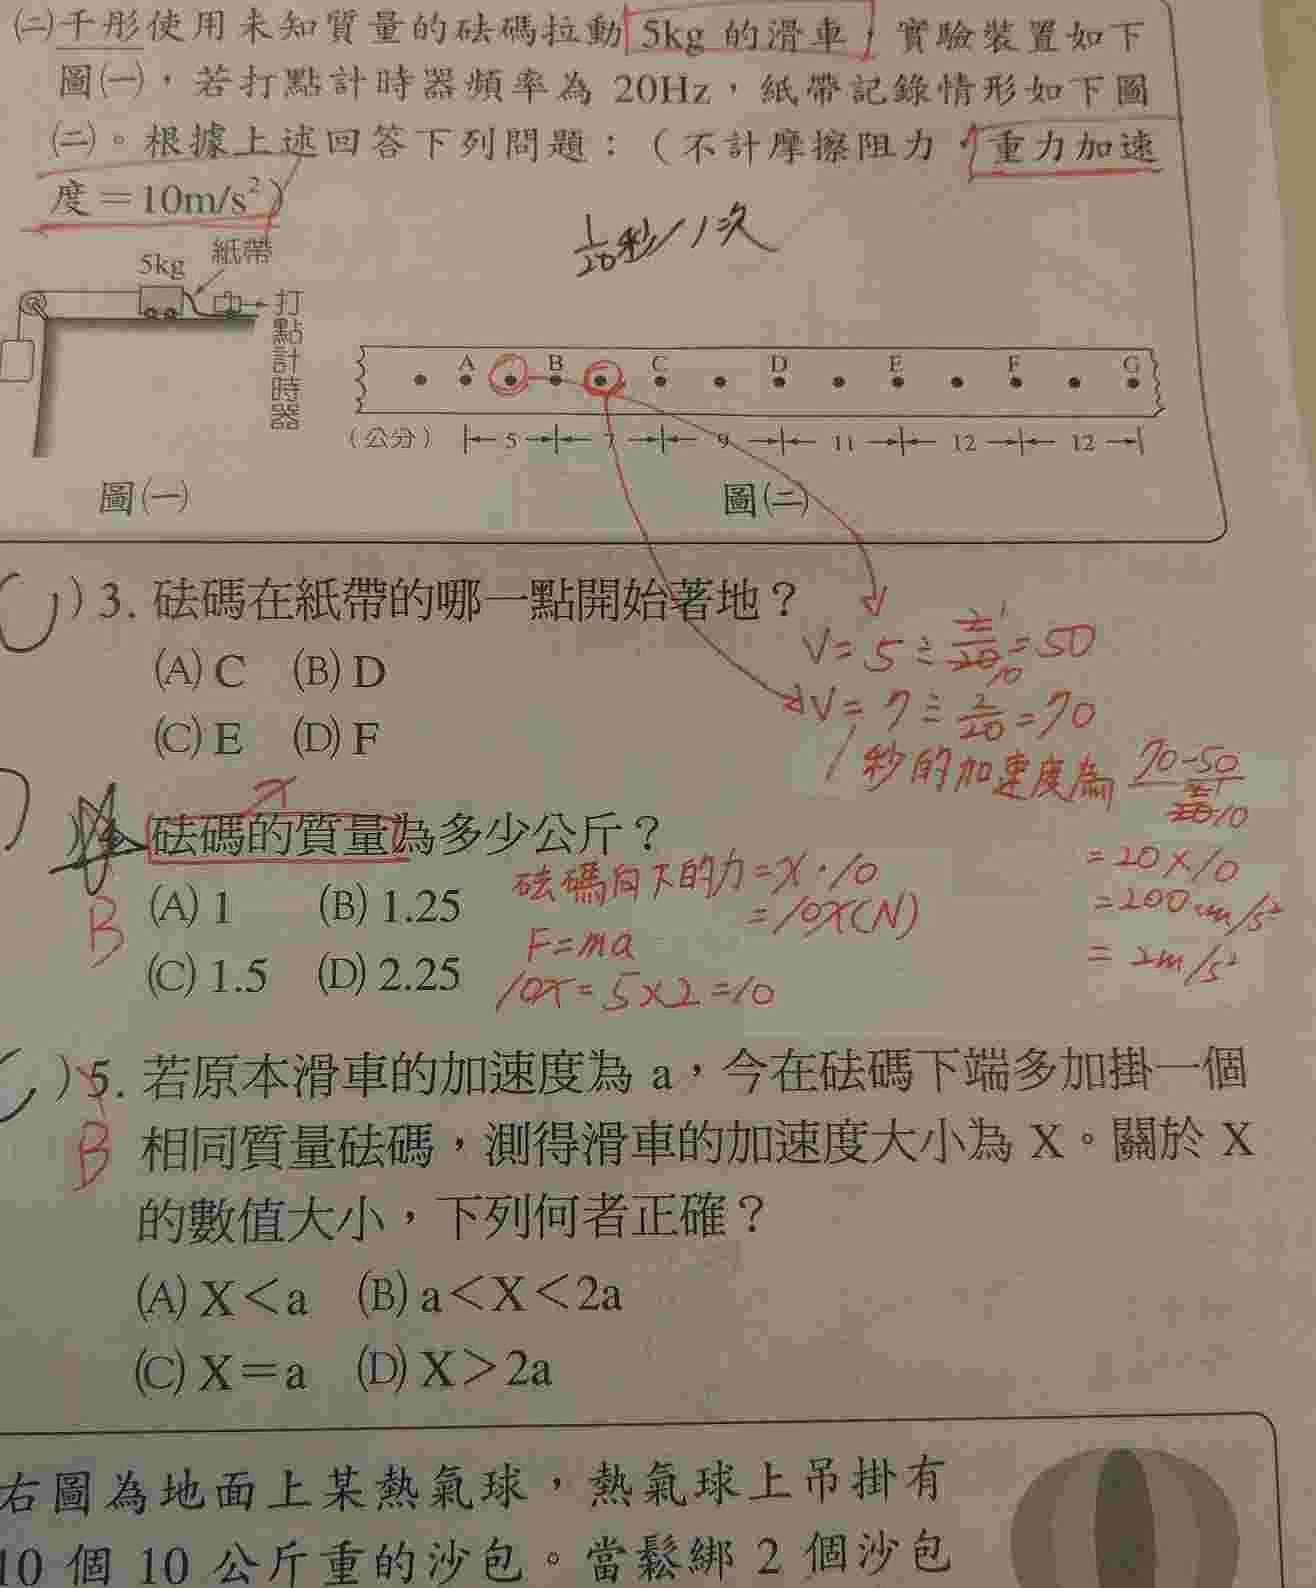 ㈡千彤使用未知質量的砝碼拉動 5kg 的滑車，實驗裝置如下
圖㈠，若打點計時器頻率為 20Hz，紙帶記錄情形如下圖
㈡。根據上述回答下列問題：（不計摩擦阻力，重力加速
度＝10m/s²）
1/20秒/1次
5kg 紙帶
打點計時器
A B C D E F G
（公分） 5 7 9 11 12 12
圖㈠ 圖㈡
) 3. 砝碼在紙帶的哪一點開始著地？
(A) C (B) D
(C) E (D) F
V= 5 ÷ 2/20 = 50
V= 7 ÷ 2/20 = 70
1秒的加速度為 70-50
= 20×10
= 200 cm/s²
= 2m/s²
x
砝碼的質量為多少公斤？
B
(A) 1 (B) 1.25
(C) 1.5 (D) 2.25
砝碼向下的力=x·10
=10x(N)
F=ma
10x=5×2=10
) 5. 若原本滑車的加速度為 a，今在砝碼下端多加掛一個
相同質量砝碼，測得滑車的加速度大小為 X。關於 X
的數值大小，下列何者正確？
B
(A) X＜a (B) a＜X＜2a
(C) X＝a (D) X＞2a
右圖為地面上某熱氣球，熱氣球上吊掛有
10 個 10 公斤重的沙包。當鬆綁 2 個沙包